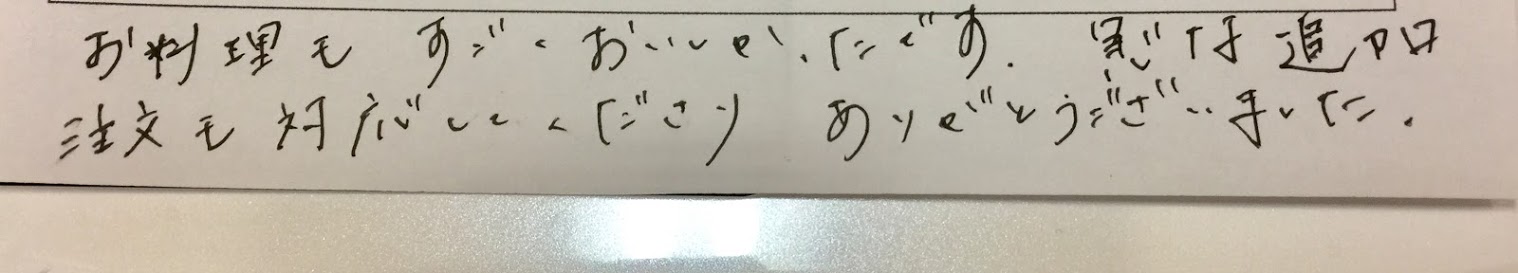 お料理もすごくおいしかったです. 急な追加
注文も対応してくださり ありがとうございました.